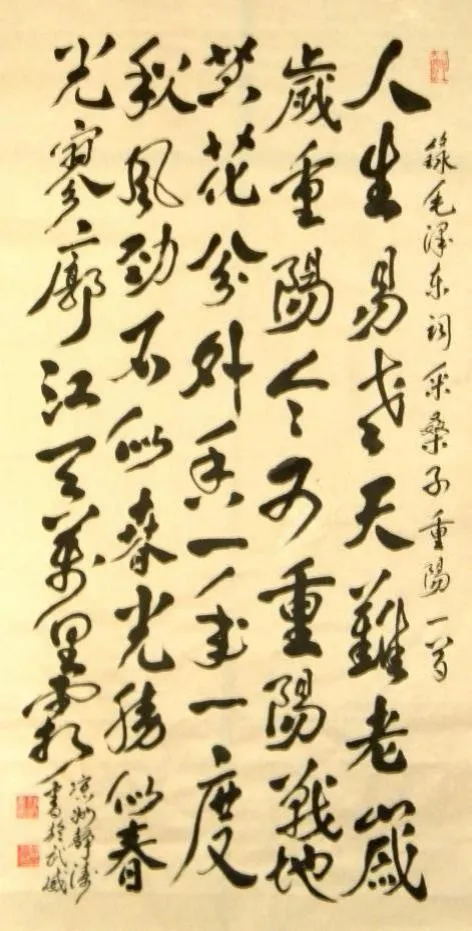 錄毛澤东词采桑子重陽一首
人生易老天難老歲
歲重陽今又重陽戰地
黄花分外香一年一度
秋風劲不似春光勝似春
光寥廓江天萬里霜
凉州靜涛
書於武威